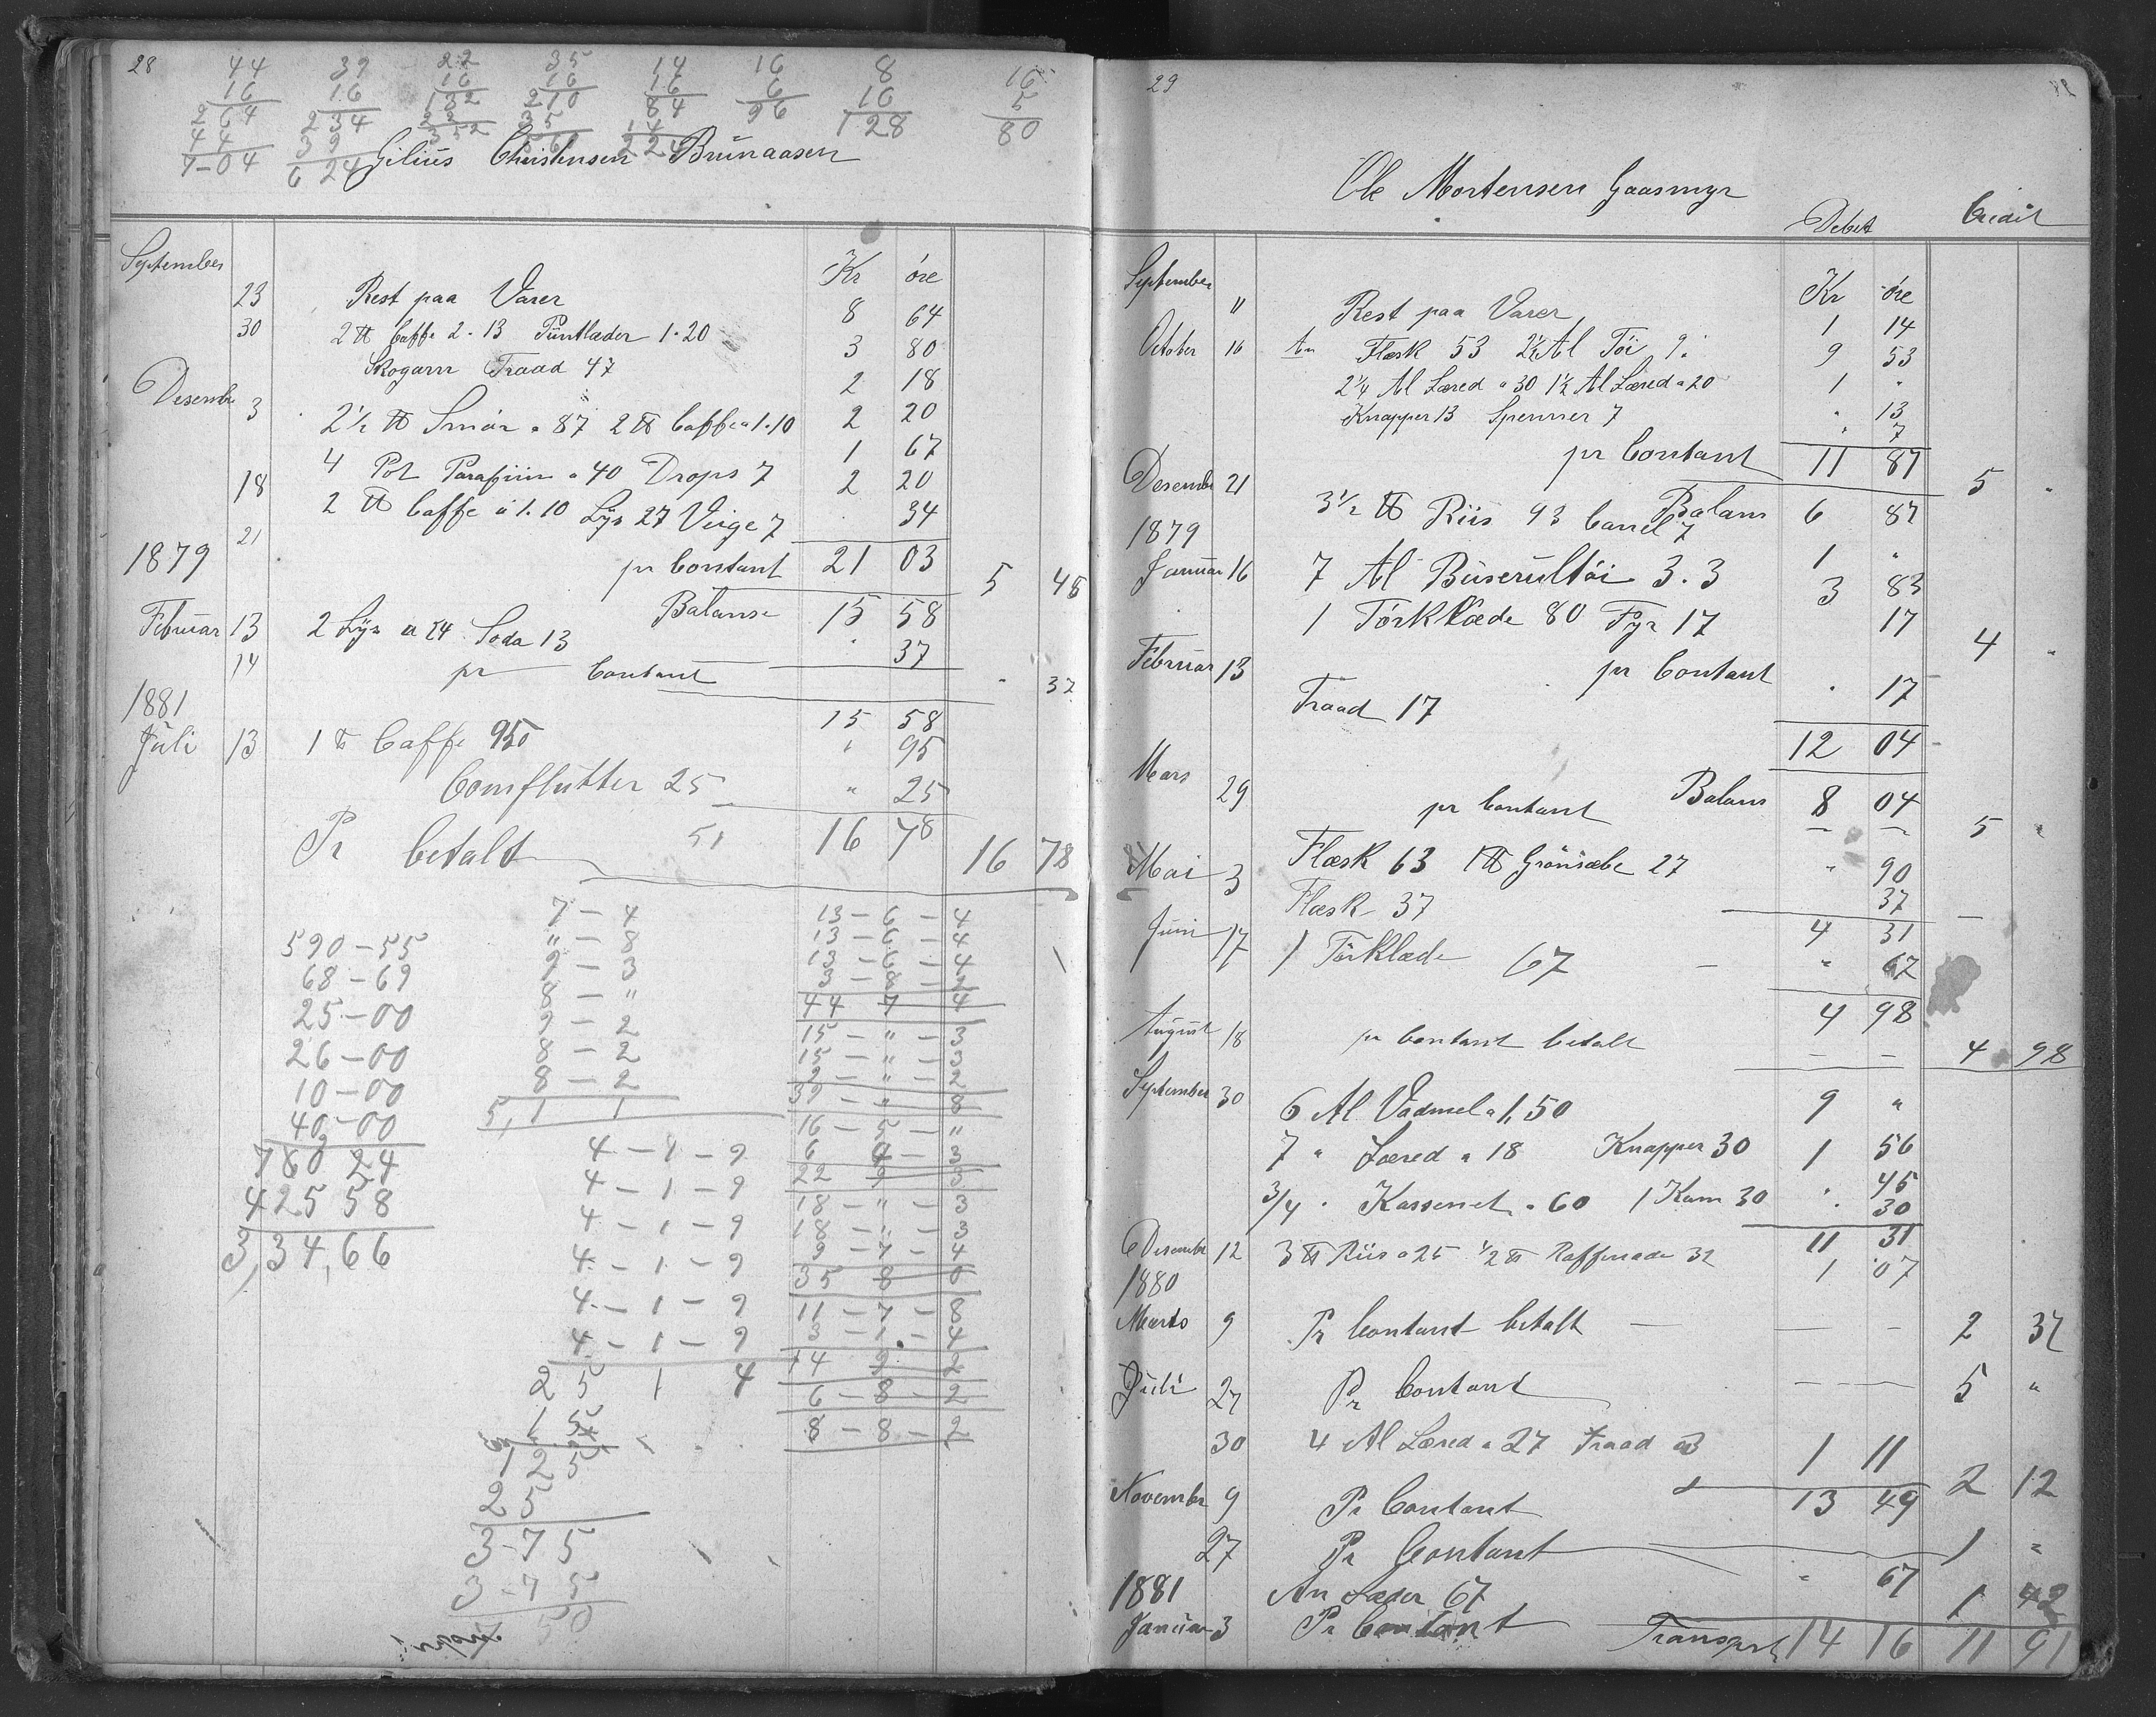 28
44 39 22 35 14 16 8 16
16 16 16 16 16 6 16 5
264 234 132 210 84 96 128 80
44 39 22 35 14
7-04 624 352 560 224
Gilius Christensen Brunaasen
Kr öre
September
23 Rest paa Varer 8 64
30 2 ℔ Caffe 2.13 Püntlæder 1.20 3 80
Skogarn Traad 47 2 18
Desember 3 2 1/2 ℔ Smör a 87 2 ℔ Caffe a 1.10 2 20
4 Pot Parafiin a 40 Drops 7 1 67
18 2 ℔ Caffe a 1.10 Lys 27 Veige 7 2 20
. 34
21 pr Contant 21 03 5 45
1879
Balanse 15 58
Februar 13 2 Lys a 24 Soda 13 . 37
14 pr Contant " 37
1881 15 58
Juli 13 1 ℔ Caffe 95 " 95
Comflutter 25 " 25
Pr betalt 51 16 78 16 78
7 - 4
" - 8
9 - 3
8 - "
9 - 2
8 - 2
8 - 2
5,1 1
590-55
68-69
25-00
26-00
10-00
40-00
780 24
425 58
3,34,66
4-1-9
4-1-9
4-1-9
4-1-9
4-1-9
4-1-9
25 1 4
1 5
125
25
3-75
3-75
50
13-6-4
13-6-4
13-6-4
3-8-2
44 7 4
15-"-3
15-"-3
2-"-2
39-"-8
16-5-"
6 4-3
22 9 3
18-"-3
18-"-3
9-7-4
35 8 0
11-7-8
3-1-4
14 9 2
6-8-2
8-8-2
29
Ole Mortensen Gaasmyr
Debet Credit
Kr öre
September " Rest paa Varer 1 14
October 16 An Flæsk 53 2 1/2 Al Töi 9. 9 53
2 1/4 Al Læred a 30 1 1/2 Al Læred a 20 1 "
Knapper 13 Spenner 7 " 13
" 7
pr Contant 11 87 5 "
Desembr 21 Balans 6 87
3 1/2 ℔ Riis 93 Canel 7 1 "
1879
Januar 16 7 Al Büserultöi 3.3 3 83
1 Törklæde 80 Fyr 17 17
pr Contant 4 "
Februar 13 Traad 17 . 17
12 04
Mars Balans 8 04
29 pr Contant 5 "
Mai 3 Flæsk 63 1 ℔ Grönsæbe 27 " 90
Flæsk 37 37
4 31
Juni 17 1 Törklæde 67 " 67
4 98
August 18 pr Contant betalt 4 98
September 30 6 Al Vadmel a 1,50 9 "
7 " Læred a 18 Knapper 30 1 56
3/4 " Kassenet a 60 1 Kam 30 " 45
" 30
11 31
Desembr 12 3 ℔ Riis a 25 1/2 ℔ Raffenade 32 1 07
1880
Marts 9 Pr Contant betalt 2 37
Juli 27 Pr Contant 5 "
30 4 Al Læred a 27 Traad a 3 1 11
November 9 Pr Contant 13 49 2 12
27 Pr Contant 1 "
1881 An Læder 67 " 67
Januar 3 Pr Contant 1 42
Transport 14 16 11 91